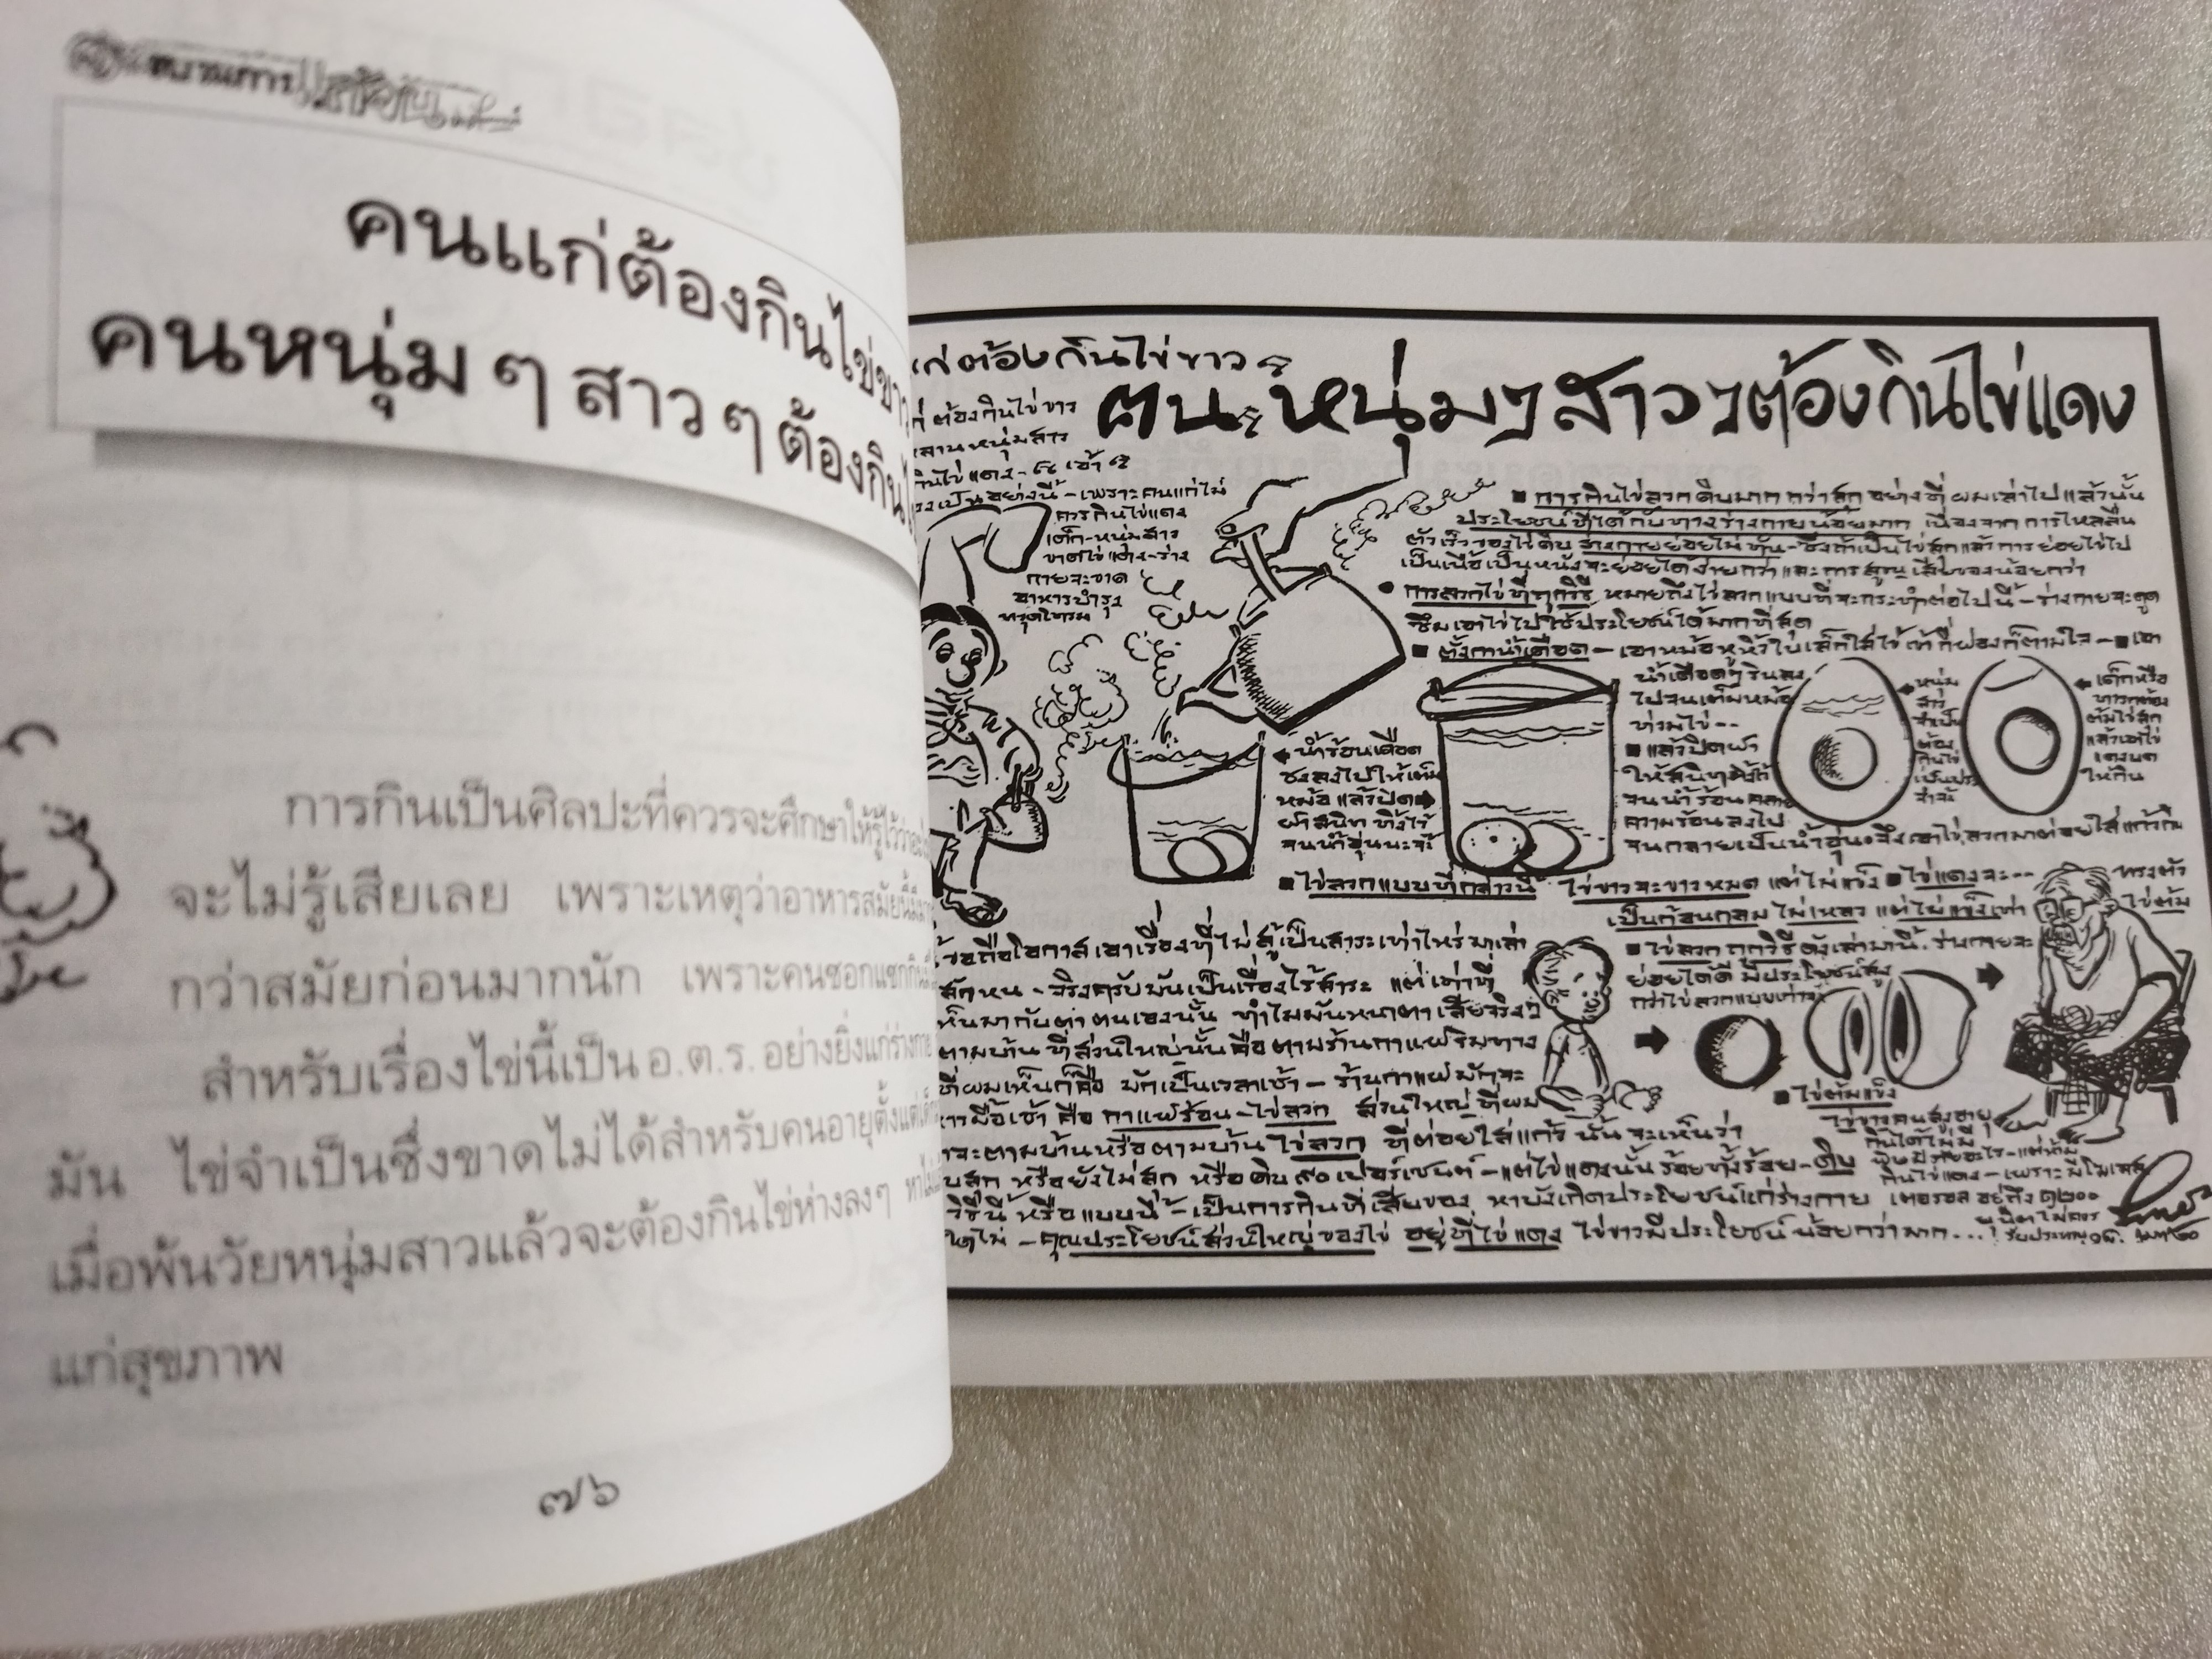 คนแก่ต้องกินไข่ขาว
คนหนุ่ม ๆ สาว ๆ ต้องกิน
การกินเป็นศิลปะที่ควรจะศึกษาให้รู้ไว้
จะไม่รู้เสียเลย เพราะเหตุว่าอาหารสมัยนี้
กว่าสมัยก่อนมากนัก เพราะคนซอกแซกกิน
สำหรับเรื่องไข่นี้เป็น อ.ต.ร. อย่างยิ่งแก่ร่างกาย
มัน ไข่จำเป็นซึ่งขาดไม่ได้สำหรับคนอายุตั้งแต่
เมื่อพ้นวัยหนุ่มสาวแล้วจะต้องกินไข่ห่างลงๆ
แก่สุขภาพ
๗๖
ต้องกินไข่ขาว
คน หนุ่มๆ สาวๆ ต้องกินไข่แดง
ต้องกินไข่ขาว
หนุ่มสาว
เป็นอย่างนี้ - เพราะคนแก่ไม่
ควรกินไข่แดง
เด็ก-หนุ่มสาว
ขาดไข่แดง-ร่าง
กายจะขาด
อาหารบำรุง
ทรุดโทรม
▪ การกินไข่ลวกดิบมากกว่าสุก อย่างที่ผมเล่าไปแล้วนั้น
ประโยชน์ที่ได้กับทางร่างกายน้อยมาก เนื่องจากการไหลลื่น
ตัวเร็วของไข่ดิบ ร่างกายย่อยไม่ทัน-ซึ่งถ้าเป็นไข่สุกแล้วการย่อยไข่ไป
เป็นเนื้อเป็นหนังจะย่อยได้ง่ายกว่าและการสูญเสียของน้อยกว่า
• การลวกไข่ที่ถูกวิธี หมายถึงไข่ลวกแบบที่จะกระทำต่อไปนี้ - ร่างกายจะดูด
ซึมเอาไข่ไปใช้ประโยชน์ได้มากที่สุด
▪ ตั้งกาน้ำเดือด - เอาหม้อหูหิ้วใบเล็กใส่ไข่ กี่ฟองก็ตามใจ - ▪ เอา
น้ำเดือดๆ รินลง
ไปจนเต็มหม้อ
ท่วมไข่ --
▪ แล้วปิดฝา
ให้สนิท
จนน้ำร้อนคลาย
ความร้อนลงไป
จนกลายเป็นน้ำอุ่น จึงเอาไข่ลวกมาต่อยใส่แก้วกิน
หนุ่ม
สาว
จำเป็น
ต้อง
กินไข่
เป็นประ
จำ
เด็กหรือ
ทารกต้อง
ต้มไข่สุก
แล้วเอาไข่
แดงบด
ให้กิน
น้ำร้อนเดือด
ชงลงไปให้เต็ม
หม้อ แล้วปิด
ฝาสนิท ทิ้งไว้
จนน้ำอุ่นนะจ๊ะ
▪ ไข่ลวกแบบที่กล่าวนี้ ไข่ขาวจะขาวหมด แต่ไม่แข็ง ▪ ไข่แดงจะ --
เป็นก้อนกลม ไม่เหลว แต่ไม่แข็งเท่า
ไข่ต้ม
▪ ไข่ลวก ถูกวิธี ดังเล่ามานี้ ร่างกายจะ
ย่อยได้ดี มีประโยชน์สูง
กว่าไข่ลวกแบบเก่า
ถือโอกาสเอาเรื่องที่ไม่สู้เป็นสาระเท่าไหร่มาเล่า
สักหน - จริงครับมันเป็นเรื่องไร้สาระ แต่เท่าที่
เห็นมากับตาตนเองนั้น ทำไมมันหนาตาเสียจริงๆ
ตามบ้าน ที่ส่วนใหญ่นั้นคือตามร้านกาแฟริมทาง
ที่ผมเห็นก็คือ มักเป็นเวลาเช้า - ร้านกาแฟมักจะ
มื้อเช้า คือ กาแฟร้อน - ไข่ลวก ส่วนใหญ่ ที่ผม
จะตามบ้านหรือตามบ้าน ไข่ลวก ที่ต่อยใส่แก้ว นั้น จะเห็นว่า
สุก หรือยังไม่สุก หรือดิบ ๙๐ เปอร์เซนต์ - แต่ไข่แดงนั้น ร้อยทั้งร้อย - ดิบ
วิธีนี้ หรือแบบนี้ - เป็นการกินที่เสียของ หาบังเกิดประโยชน์แก่ร่างกาย
- คุณประโยชน์ส่วนใหญ่ของไข่ อยู่ที่ไข่แดง ไข่ขาวมีประโยชน์น้อยกว่ามาก...!
▪ ไข่ต้มแข็ง
ไข่ขาวคนสูงอายุ
กินได้ไม่มี
พิษภัยอะไร - แต่ห้าม
กินไข่แดง - เพราะมีโคเลส
เตอรอลอยู่ถึง